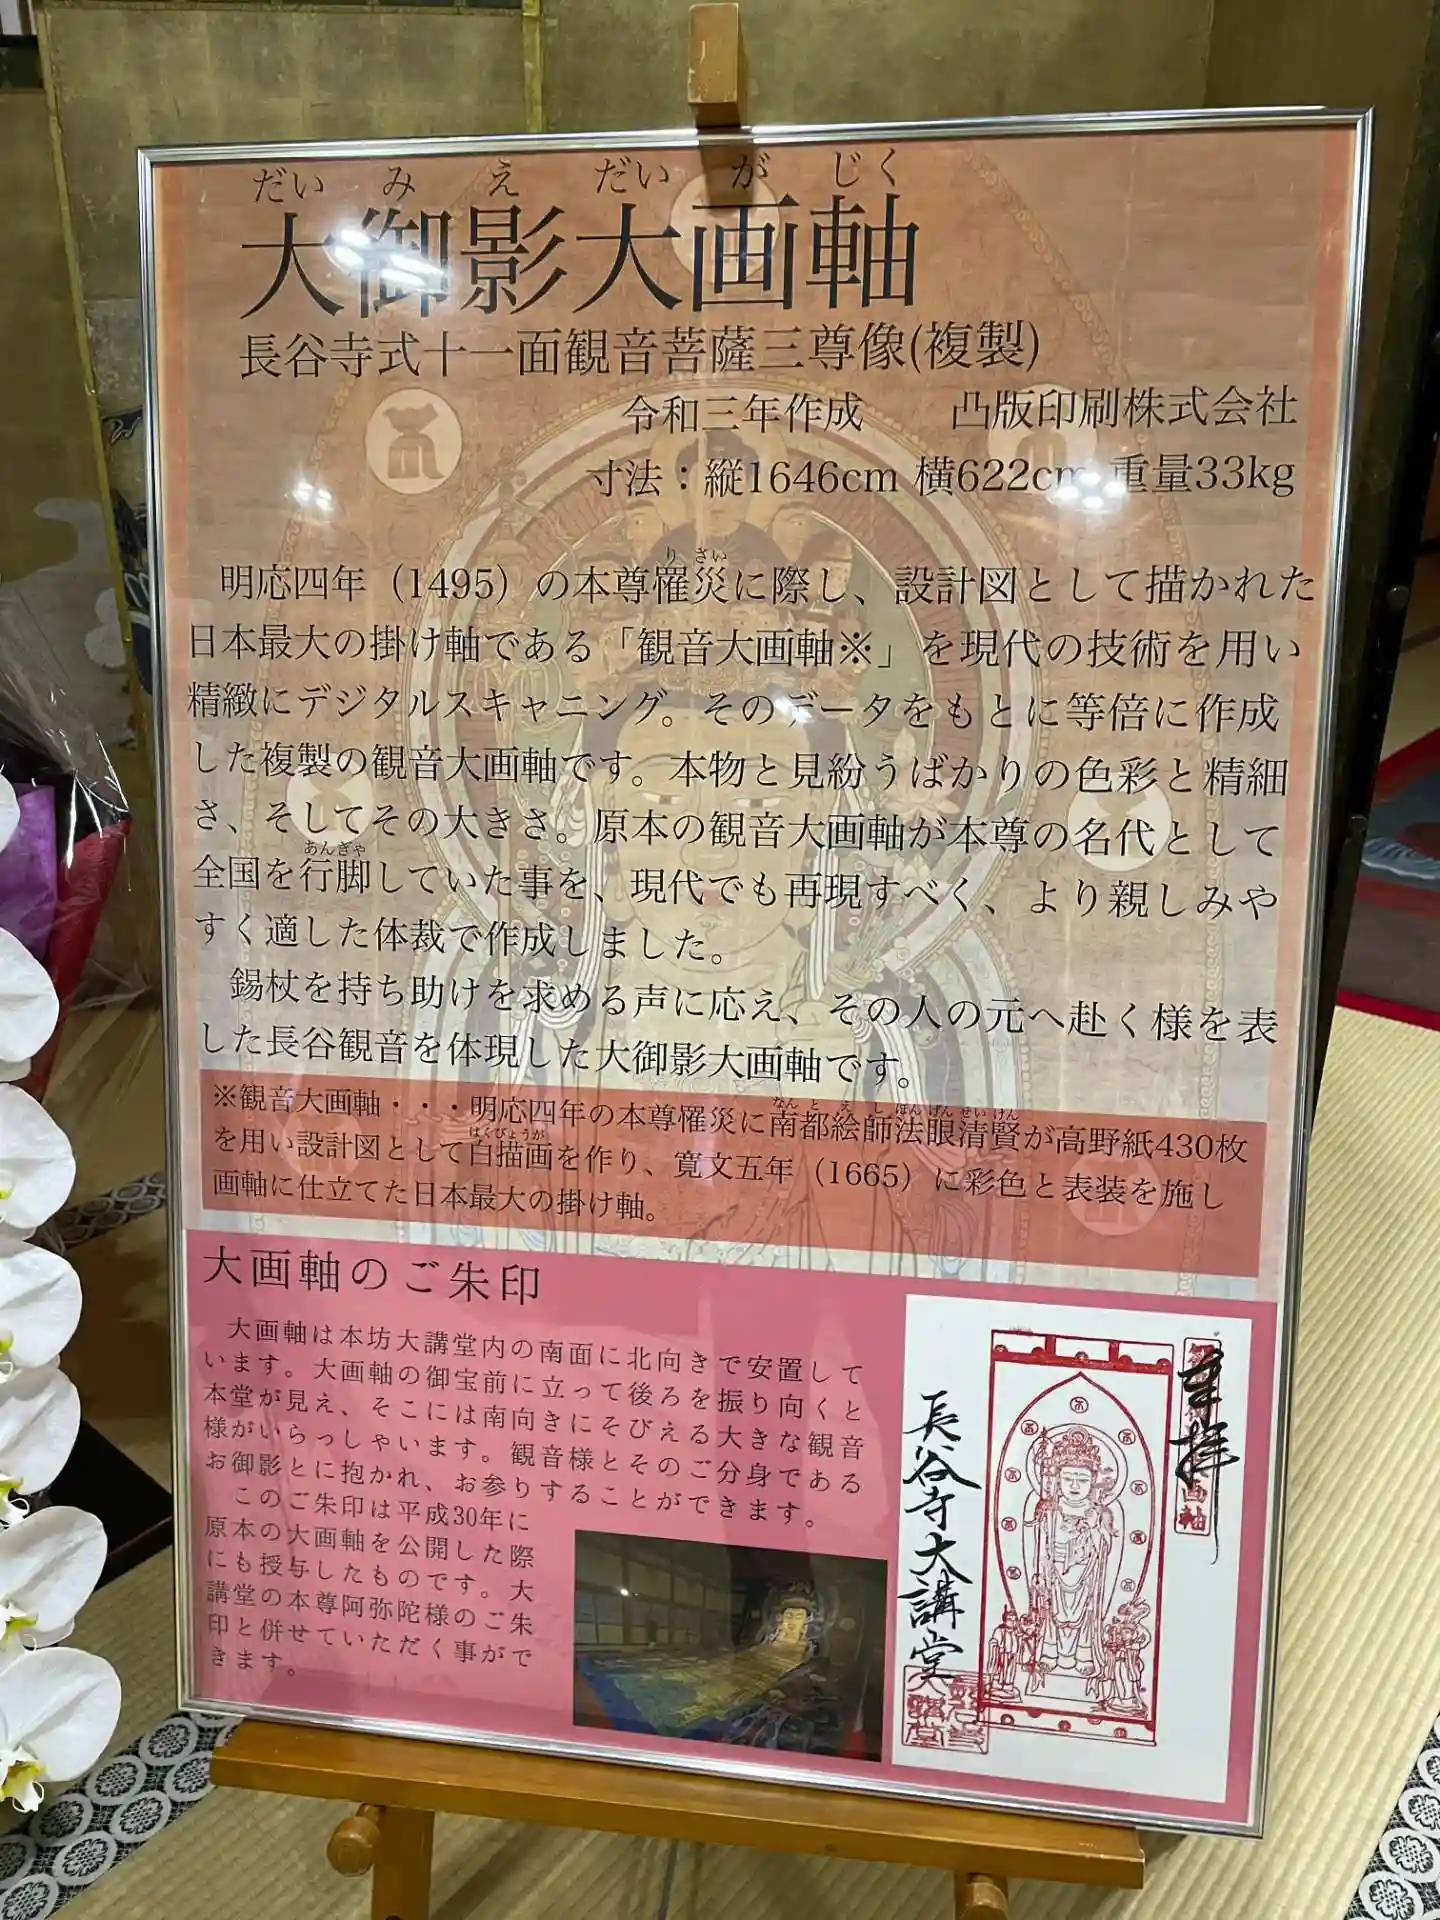 だいみえだいがじく
大御影大画軸
長谷寺式十一面観音菩薩三尊像(複製)
令和三年作成　凸版印刷株式会社
寸法：縦1646cm 横622cm 重量33kg
りさい
明応四年（1495）の本尊罹災に際し、設計図として描かれた
日本最大の掛け軸である「観音大画軸※」を現代の技術を用い
精緻にデジタルスキャニング。そのデータをもとに等倍に作成
した複製の観音大画軸です。本物と見紛うばかりの色彩と精細
さ、そしてその大きさ。原本の観音大画軸が本尊の名代として
あんぎゃ
全国を行脚していた事を、現代でも再現すべく、より親しみや
すく適した体裁で作成しました。
錫杖を持ち助けを求める声に応え、その人の元へ赴く様を表
した長谷観音を体現した大御影大画軸です。
なんとえしほんげんせいけん
※観音大画軸・・・明応四年の本尊罹災に南都絵師法眼清賢が高野紙430枚
はくびょうが
を用い設計図として白描画を作り、寛文五年（1665）に彩色と表装を施し
画軸に仕立てた日本最大の掛け軸。
大画軸のご朱印
大画軸は本坊大講堂内の南面に北向きで安置して
います。大画軸の御宝前に立って後ろを振り向くと
本堂が見え、そこには南向きにそびえる大きな観音
様がいらっしゃいます。観音様とそのご分身である
お御影とに抱かれ、お参りすることができます。
このご朱印は平成30年に
原本の大画軸を公開した際
にも授与したものです。大
講堂の本尊阿弥陀様のご朱
印と併せていただく事がで
きます。
奉拝
画軸
長谷寺大講堂